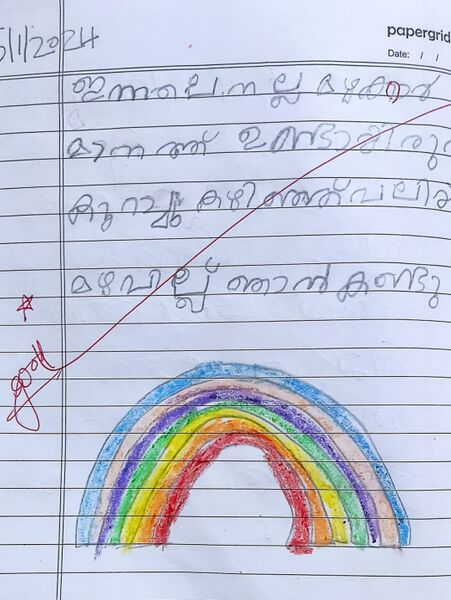 5/1/2024
papergrid
Date: / /
ഇന്നലെ നല്ല മഴക്കാർ
മാനത്ത് ഉണ്ടായിരു
കുറച്ചു കഴിഞ്ഞ് വലിയ
മഴവില്ല് ഞാൻ കണ്ടു
good